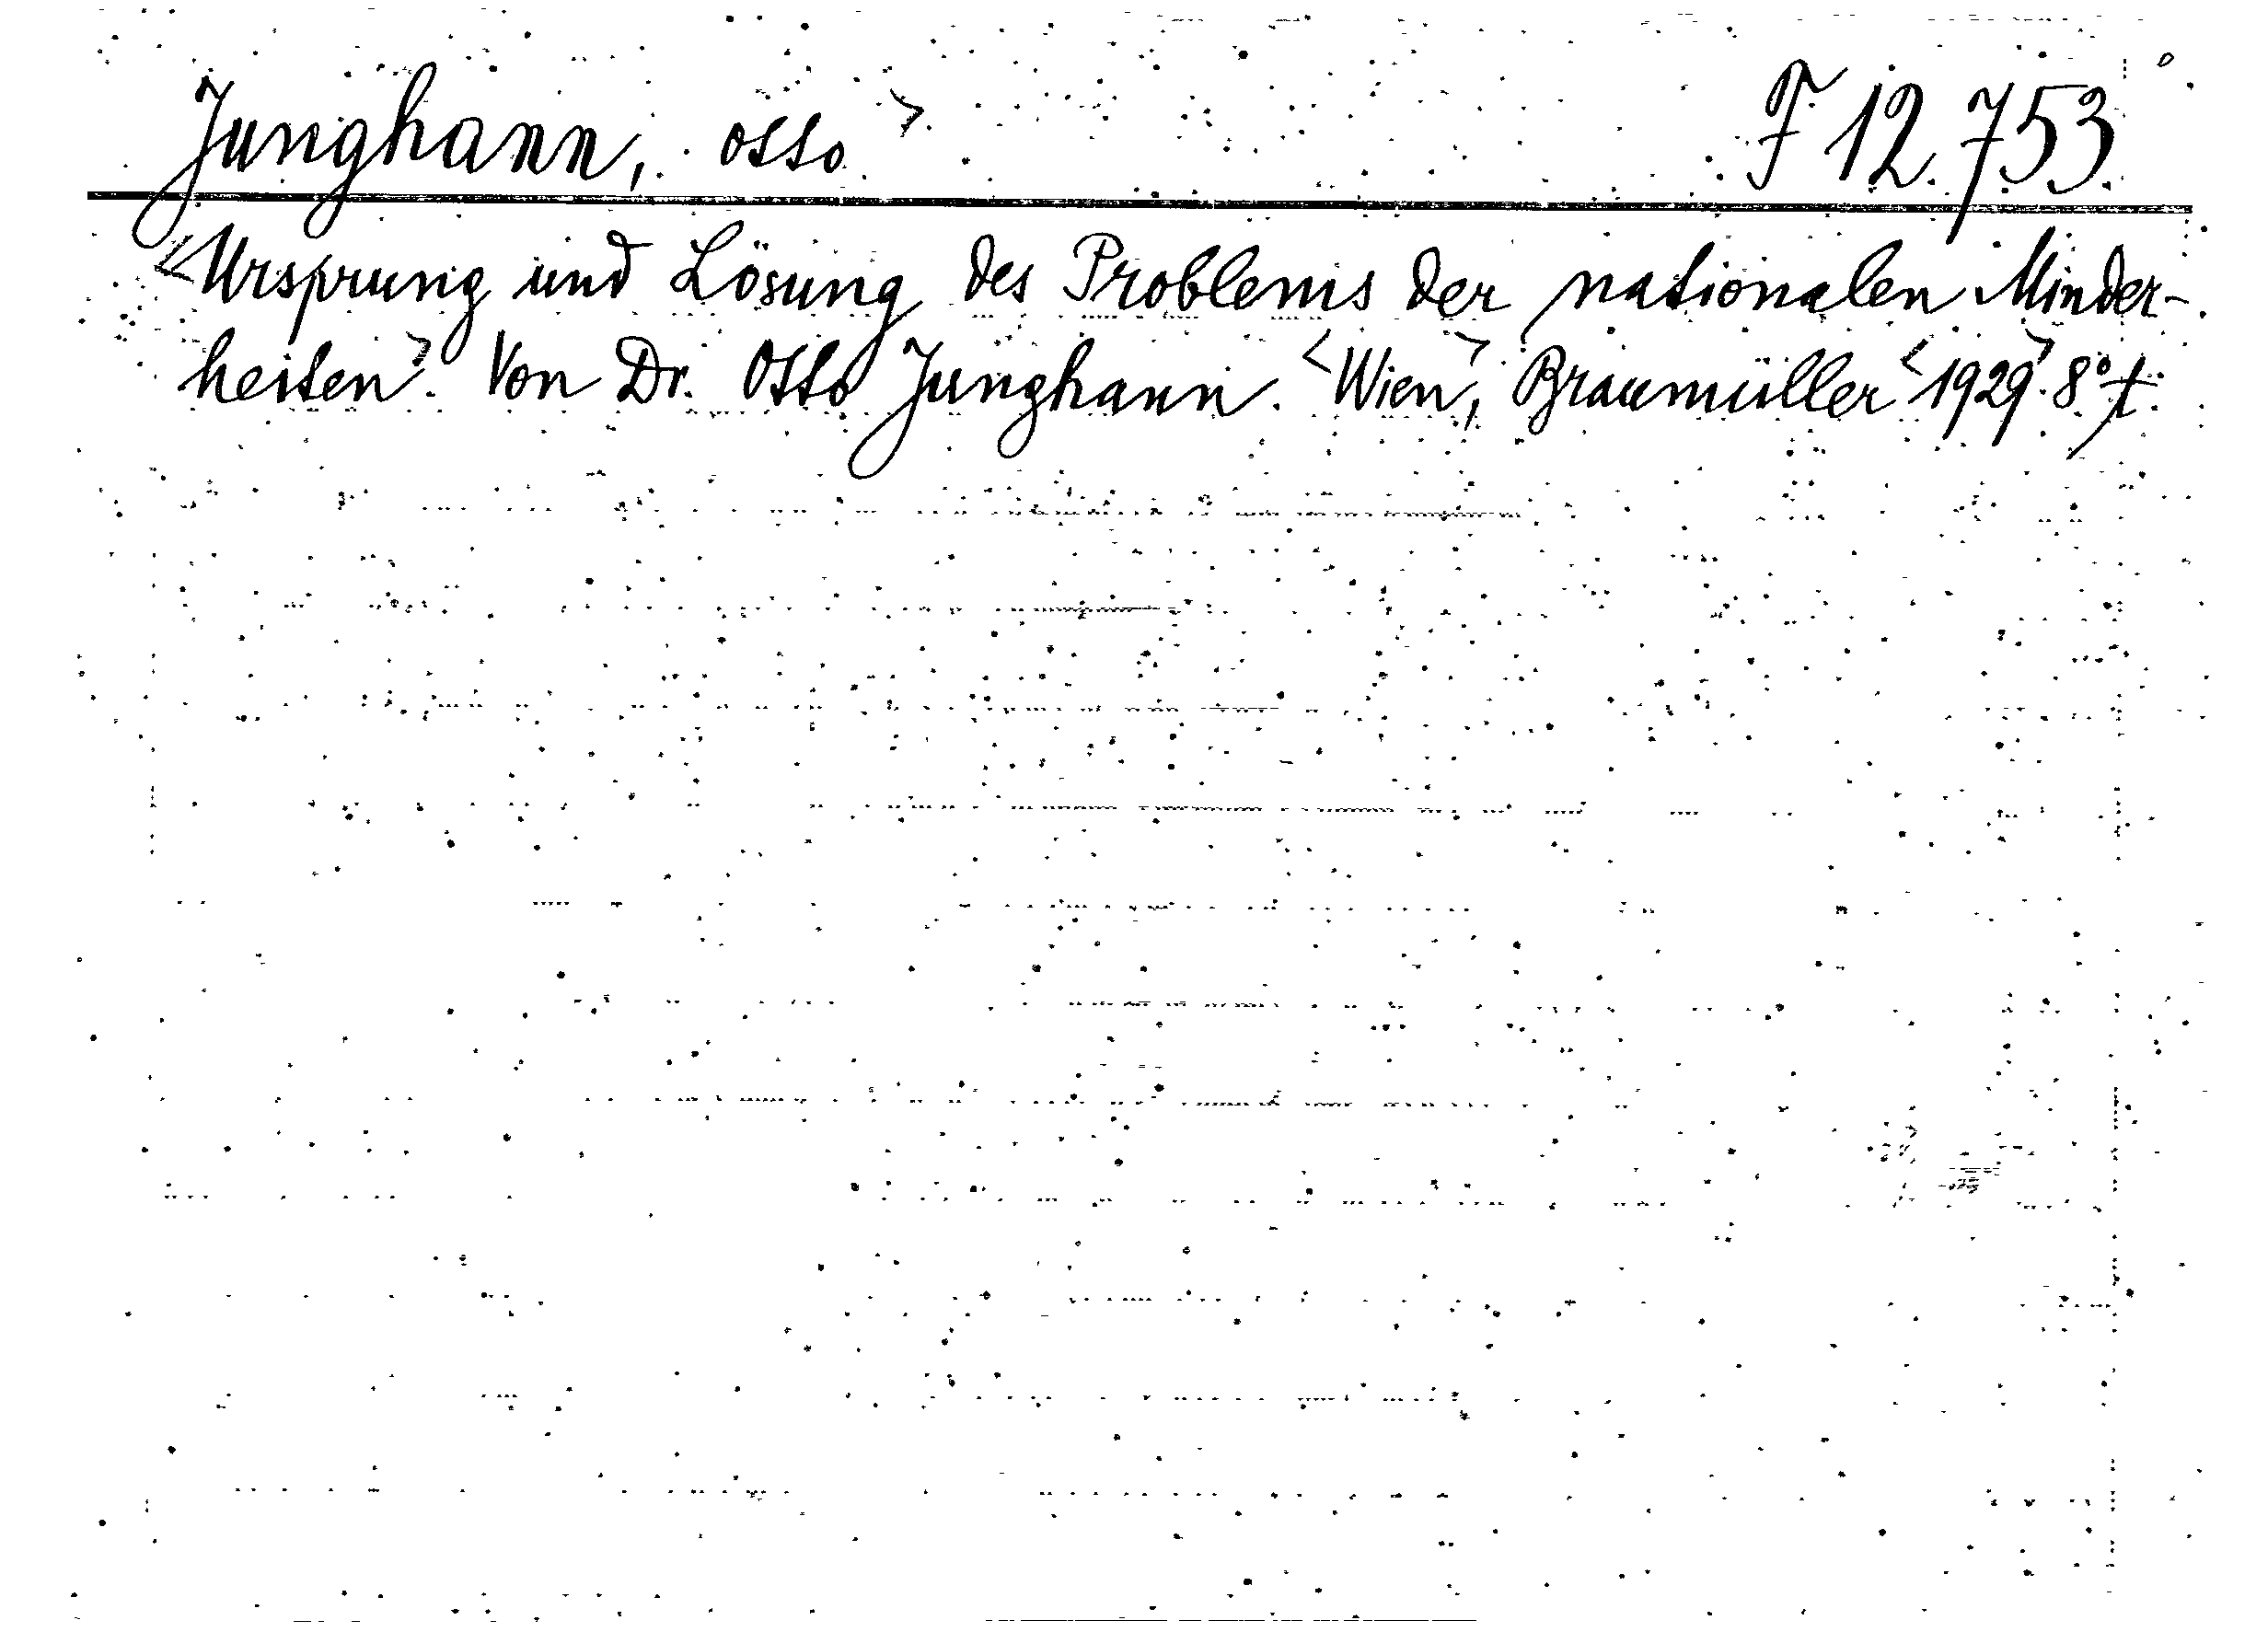 Junghann, Otto > F 12.753
<Ursprung und Lösung des Problems der nationalen Minder-
heiten>. Von Dr. Otto Junghann. <Wien>, Braumüller <1929>. 8°